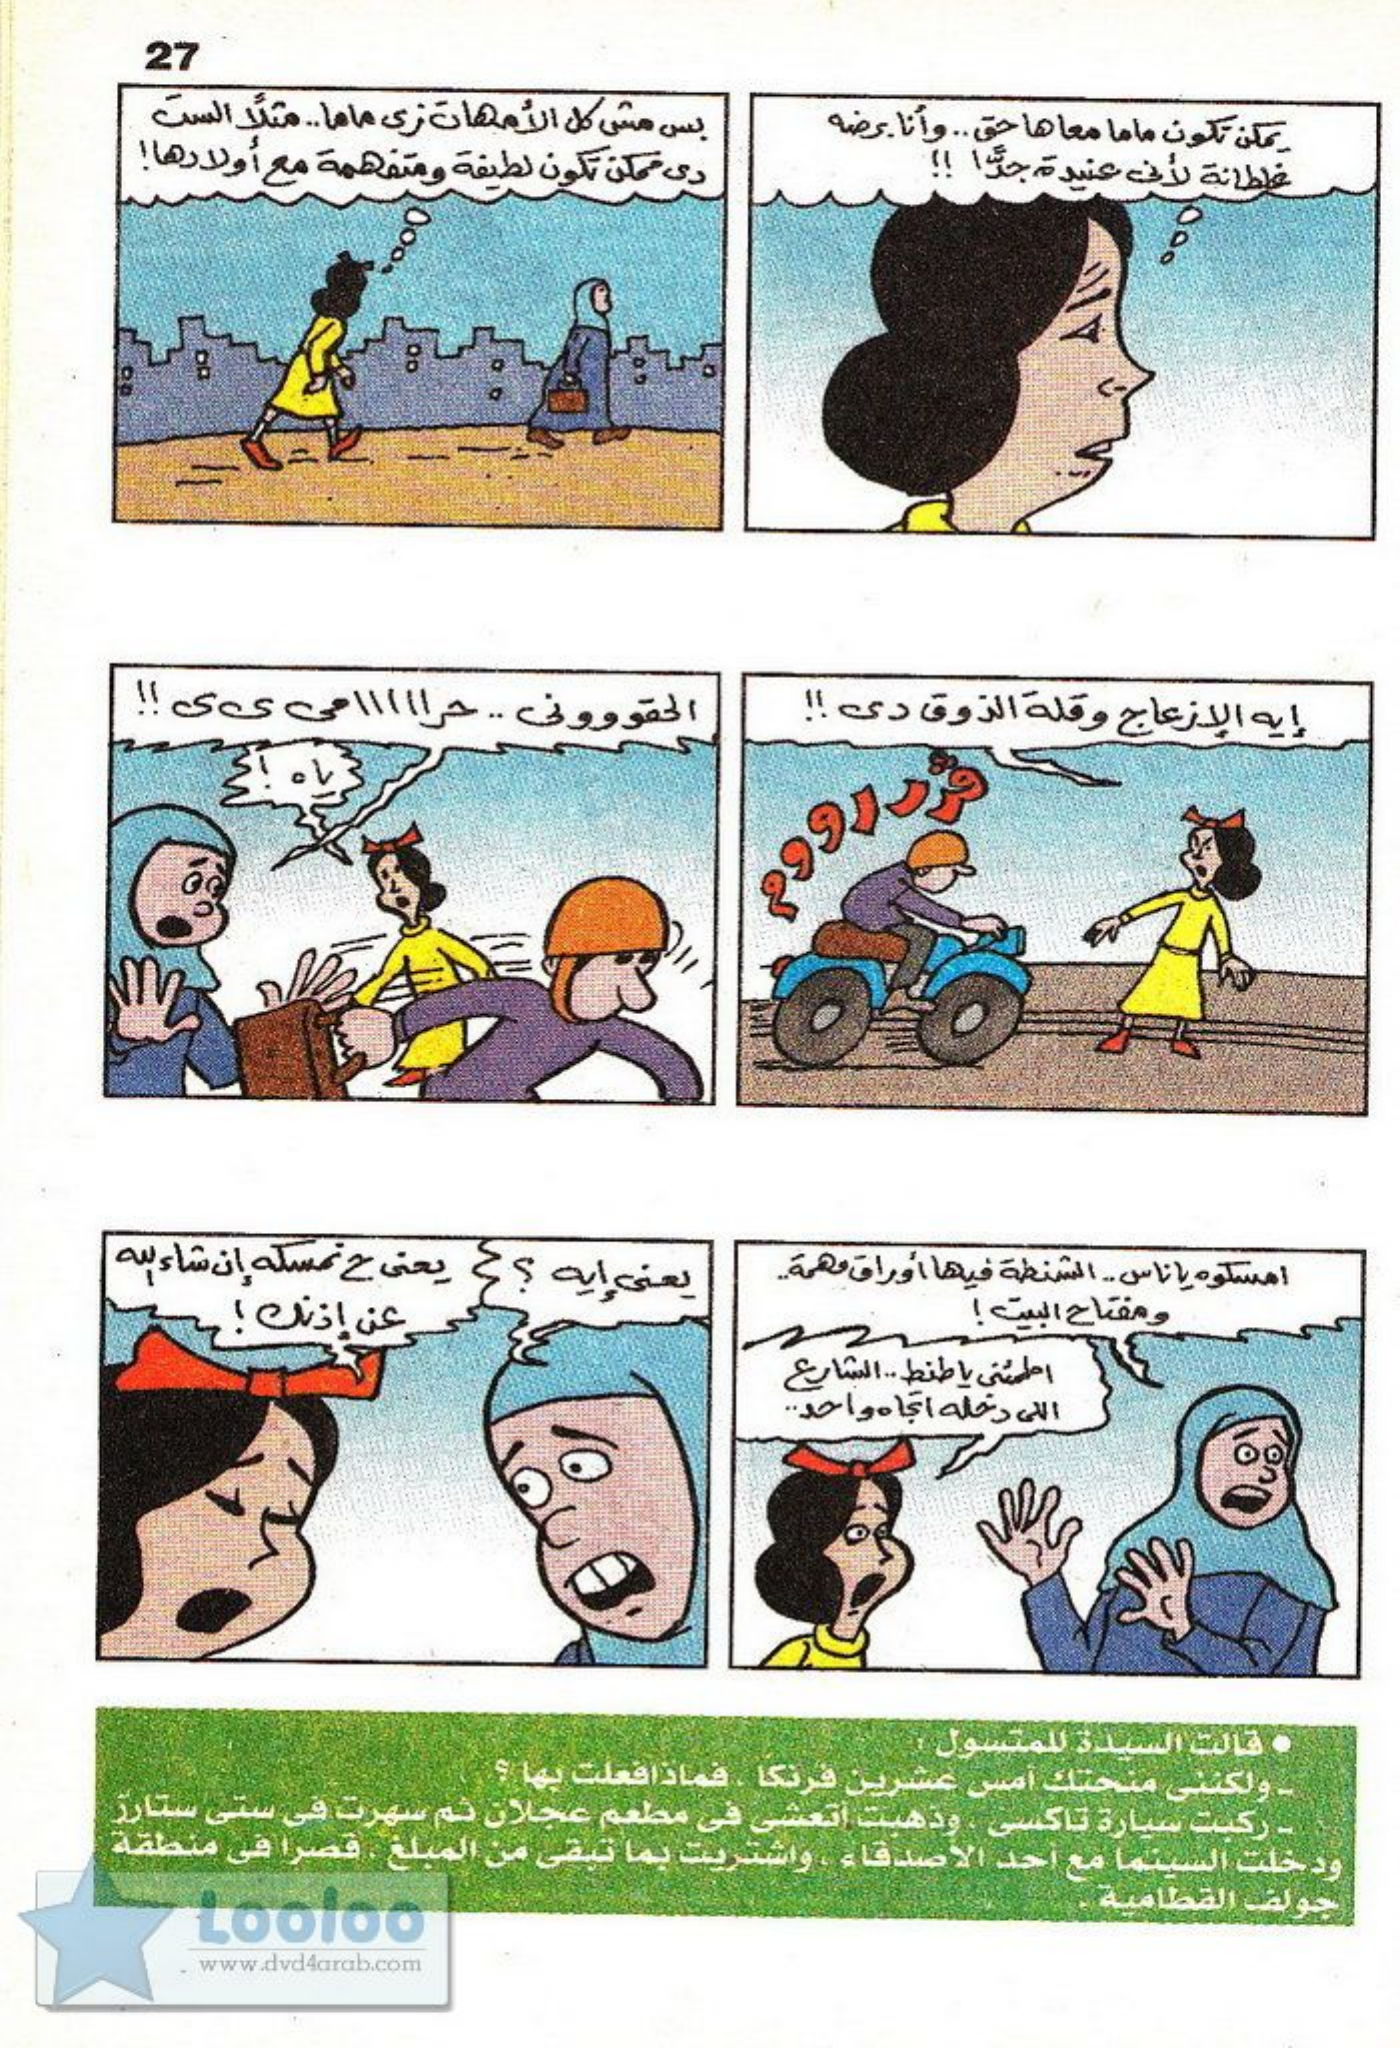 27
يمكن تكون ماما معاها حق.. وأنا برضه
غلطانة لأنى عنيدة جدًّا !!
بس مش كل الأمهات زى ماما.. مثلًا الست
دى ممكن تكون لطيفة ومتفهمة مع أولادها!
إيه الإزعاج وقلة الذوق دى !!
الحقووونى .. حرااااامى ى ى !!
ياه !
امسكوه يا ناس.. الشنطة فيها أوراق مهمة..
ومفتاح البيت !
اطمئنى يا طنط.. الشارع
اللى دخله اتجاه واحد..
يعنى إيه ؟
يعنى ح نمسكه إن شاء الله
عن إذنك !
● قالت السيدة للمتسول :
ـ ولكننى منحتك أمس عشرين فرنكا . فماذا فعلت بها ؟
ـ ركبت سيارة تاكسى . وذهبت أتعشى فى مطعم عجلان ثم سهرت فى ستى ستارز
ودخلت السينما مع أحد الأصدقاء . واشتريت بما تبقى من المبلغ . قصرا فى منطقة
جولف القطامية .
Looloo
www.dvd4arab.com